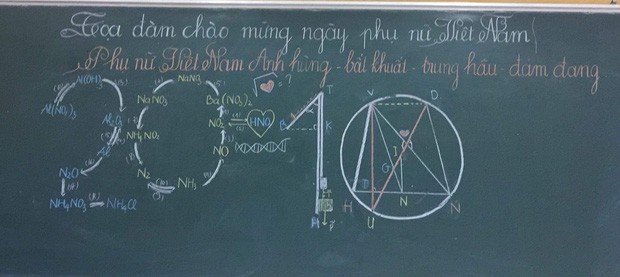 Tọa đàm chào mừng ngày phụ nữ Việt Nam
Phụ nữ Việt Nam Anh hùng - bất khuất - trung hậu - đảm đang
Al(OH)3
NaNO3
= ?
Al(NO3)3
NaNO3
Ba(NO3)2
Al2O3
NH4NO2
NO2
HNO3
Al
N2O
N2
NO
NH4NO3
NH4Cl
NH3
T
B
K
A
V
D
I
G
H
N
N
U